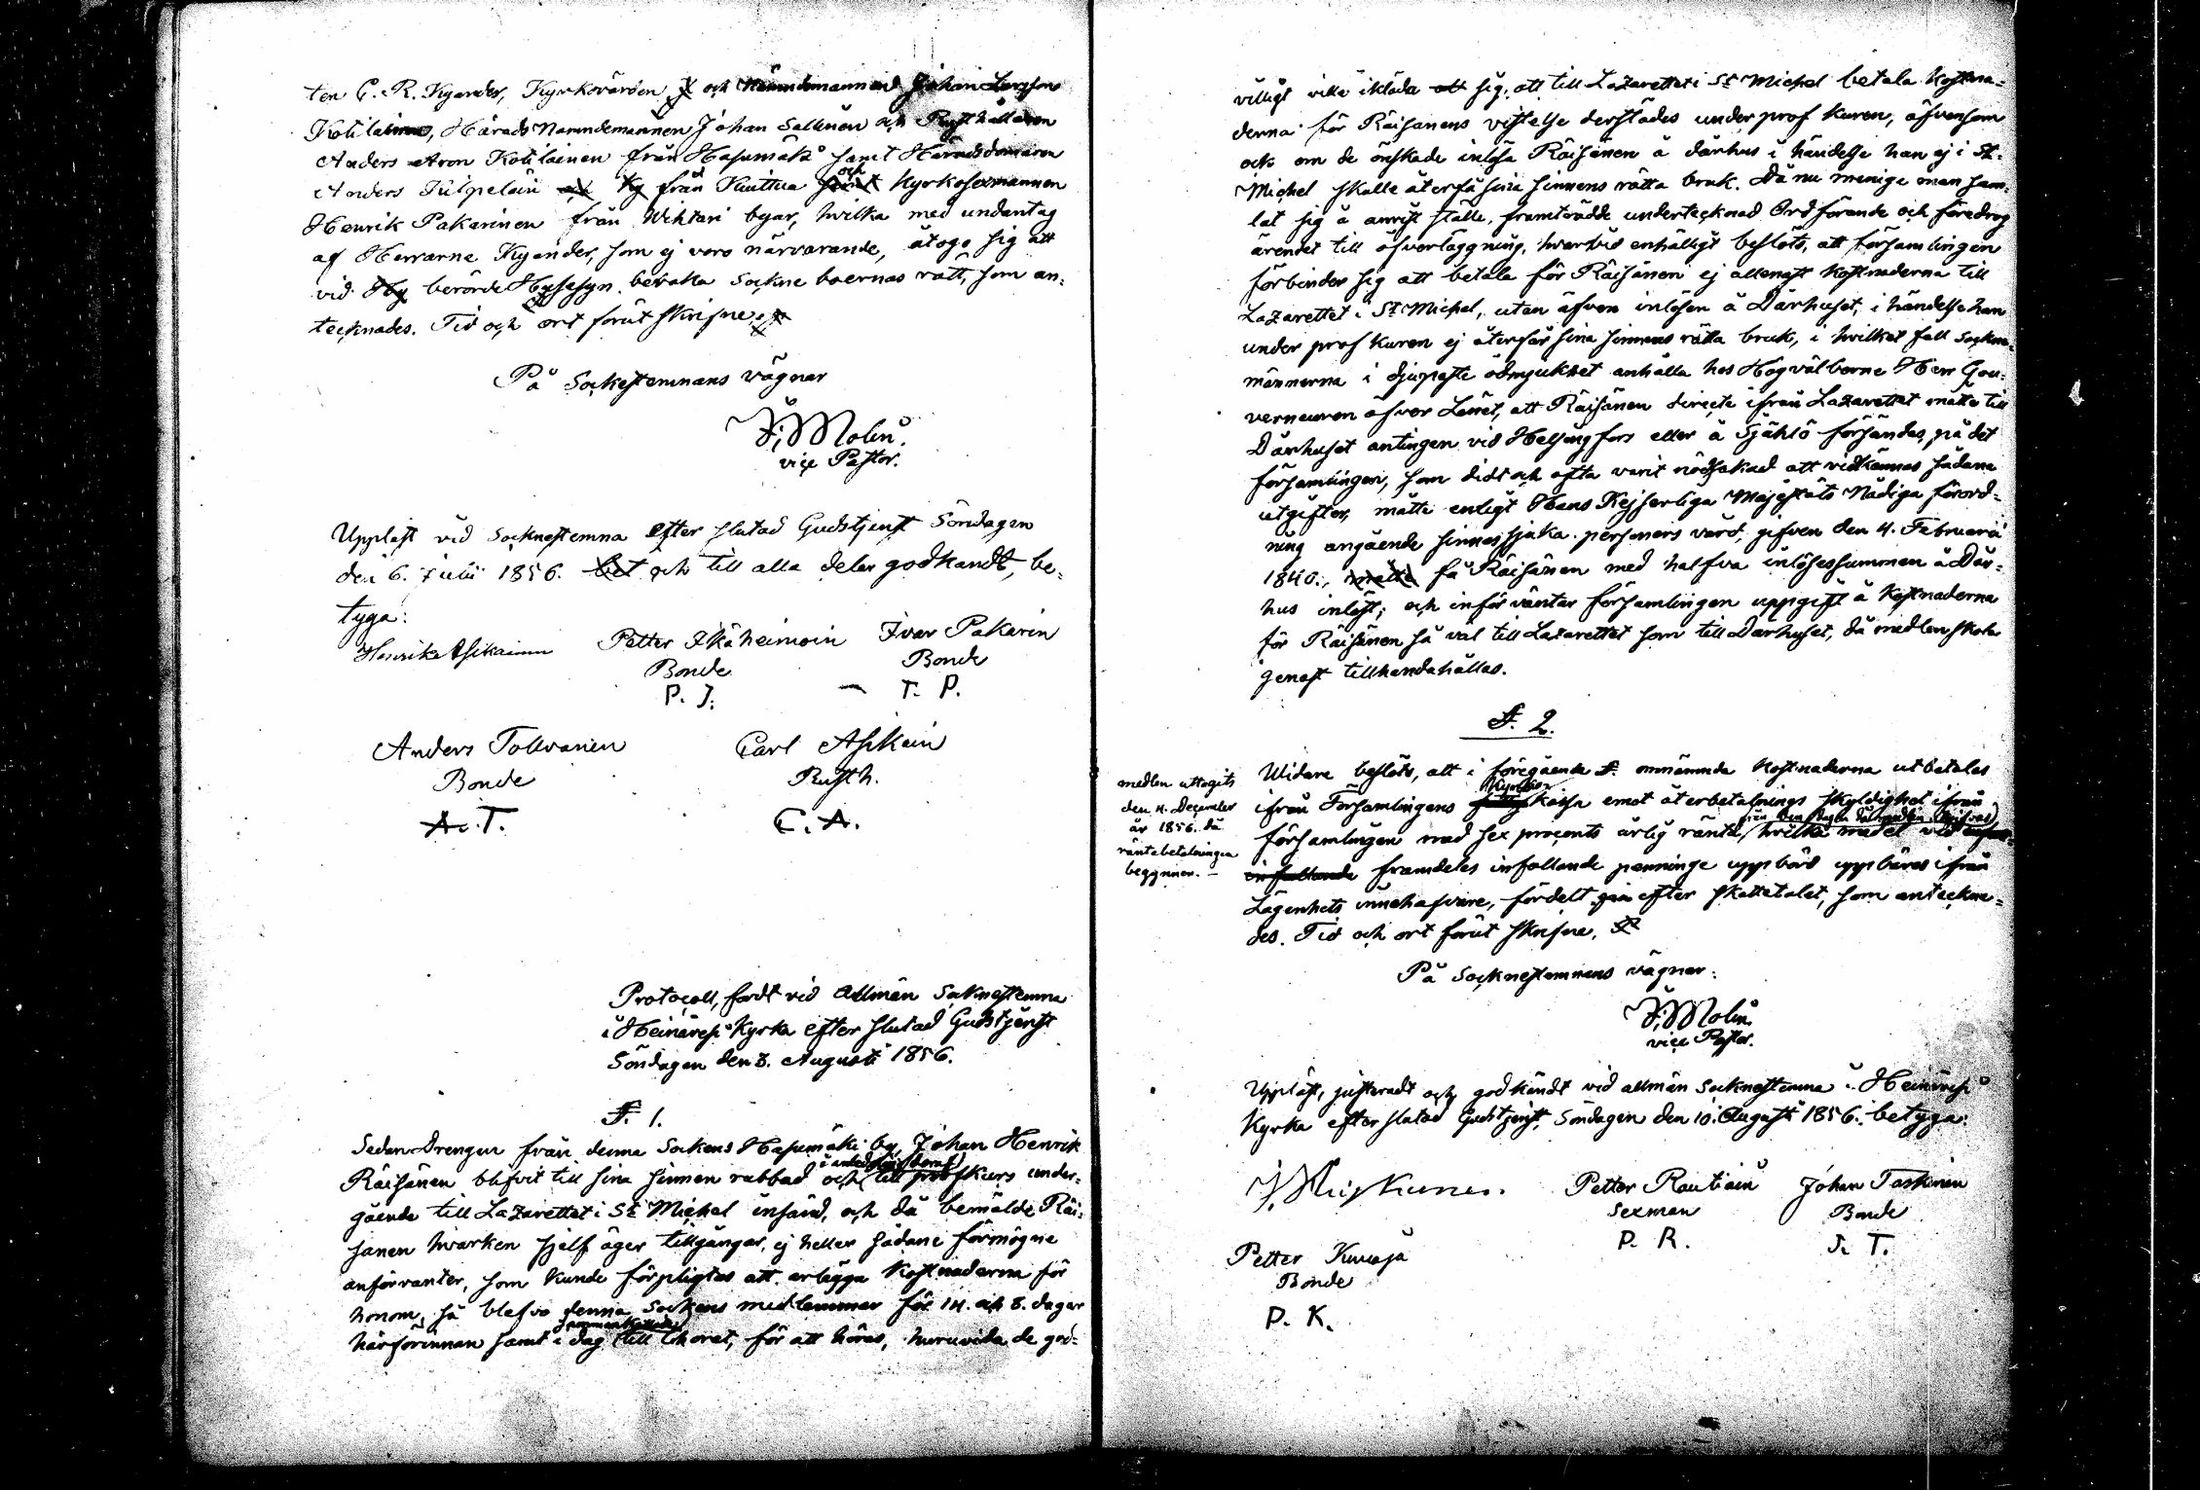 ten C. R. Kyander, Kyrkovärden och Nämndemannen Johan Larsson
Kotilainen, Härads Nämndemannen Johan Sallinen och Rusthållaren
Anders Aron Kotilainen från Hasumäki samt Häradsdomaren
Anders Pulpelain från Kuittua och Kyrkosexmannen
Henrik Pakarinen från Wihtari byar, hvilka med undantag
af Herrarne Kyander, som ej voro närvarande, åtogo sig att
vid berörde Husesyn bevaka Sockne boernas rätt, som an-
tecknades. Tid och ort förut skrifne.
På Sockestemnans vägnar
J. Molin.
vice Pastor.
Uppläst vid Socknestemna efter slutad Gudstjenst Söndagen
den 6. Julii 1856. och till alla delar godkändt, be-
tyga:
Henrik Asikainen Petter Ikäheimoin Ivar Pakarin
Bonde Bonde
P. I. T. P.
Anders Tolvanen Carl Asikain
Bonde Rusth.
A. T. C. A.
Protocoll, fördt vid Allmän Socknestemna
i Heinävesi Kyrka efter slutad Gudstjenst
Söndagen den 3. Augusti 1856.
§. 1.
Sedan Drengen från denna Sockens Hasumäki by, Johan Henrik
Räisänen blifvit till sina sinnen rubbad och till profskurs under-
gående till Lazarettet i St Michel insänd, och då bemälde Räi-
sänen hvarken sjelf äger tillgångar, ej heller sådane förmögne
anförvanter, som kunde förpligtas att erlägga kostnaderna för
honom, så blefvo denna Sockens medlemmar för 14. och 8. dagar
härförinnan samt i dag till thoret, för att höras, huruvida de god-
villigt ville ikläda sig, att till Lazarettet i St Michel betala kostna-
derna för Räisänens vistelse derstädes under prof kuren, äfvensom
ock om de önskade inlösa Räisänen å dårhus i händelse han ej i St.
Michel skulle återfå sina sinnens rätta bruk. Då nu menige man sam-
lat sig å anvist ställe, framträdde undertecknad Ordförande och föredrog
ärendet till öfverläggning, hvarvid enhälligt beslöts, att församlingen
förbinder sig att betala för Räisänen ej allenast kostnaderna till
Lazarettet i St Michel, utan äfven inlösen å Dårhuset, i händelse han
under prof kuren ej återfår sina sinnens rätta bruk, i hvilket fall Sockne-
männerna i djupaste ödmjukhet anhålla hos Högvälborne Herr Gou-
verneuren öfver Länet, att Räisänen directe ifrån Lazarettet måtte till
Dårhuset antingen vid Helsingfors eller å Själö försändas, på det
församlingen, som tidt och ofta varit nödsakad att vidkännas sådana
utgifter, måtte enligt Hans Kejserliga Majestäts Nådiga förord-
ning angående sinnessjuka personers vård, gifven den 4. Februarii
1840., få Räisänen med halfva inlösessumman å Dår-
hus inlöst; och inför väntar församlingen uppgift å kostnaderna
för Räisänen så väl till Lazarettet som till Dårhuset, då medlen skola
genast tillhandahållas.
§. 2.
Widare beslöts, att i föregående §. omnämnda kostnaderna utbetalas
ifrån Församlingens Kyrko kassa emot återbetalnings skyldighet ifrån
församlingen med sex procents årlig ränta, hvilka medel vid
framdeles infallande penninge uppbörd uppbäras ifrån
Lägenhets innehafvare, fördelt efter skattetalet, som anteckna-
des. Tid och ort förut skrifne.
medlen uttagits
den 4. December
år 1856. då
räntebetalningen
begynner. -
På Socknestemnans vägnar:
J. Molin.
vice Pastor.
Uppläst, justeradt och godkändt vid allmän Socknestemna i Heinävesi
Kyrka efter slutad Gudstjenst, Söndagen den 10. Augusti 1856. betyga:
Petter Rautiain Johan Taskinen
Sexman Bonde
P. R. J. T.
Petter Kuvaja
Bonde
P. K.